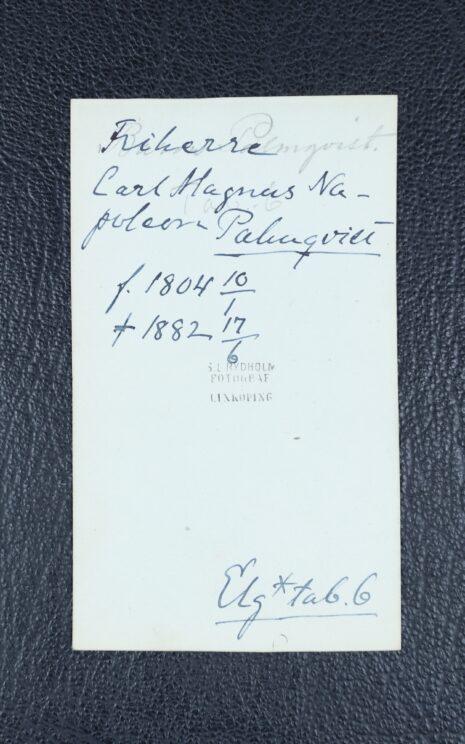 Friherre
Palmqvist.
Carl Magnus Na-
poleon Palmqvist
f. 1804 10/1
† 1882 17/6
S L RYDHOLM
FOTOGRAF
LINKÖPING
Elg* tab. 6